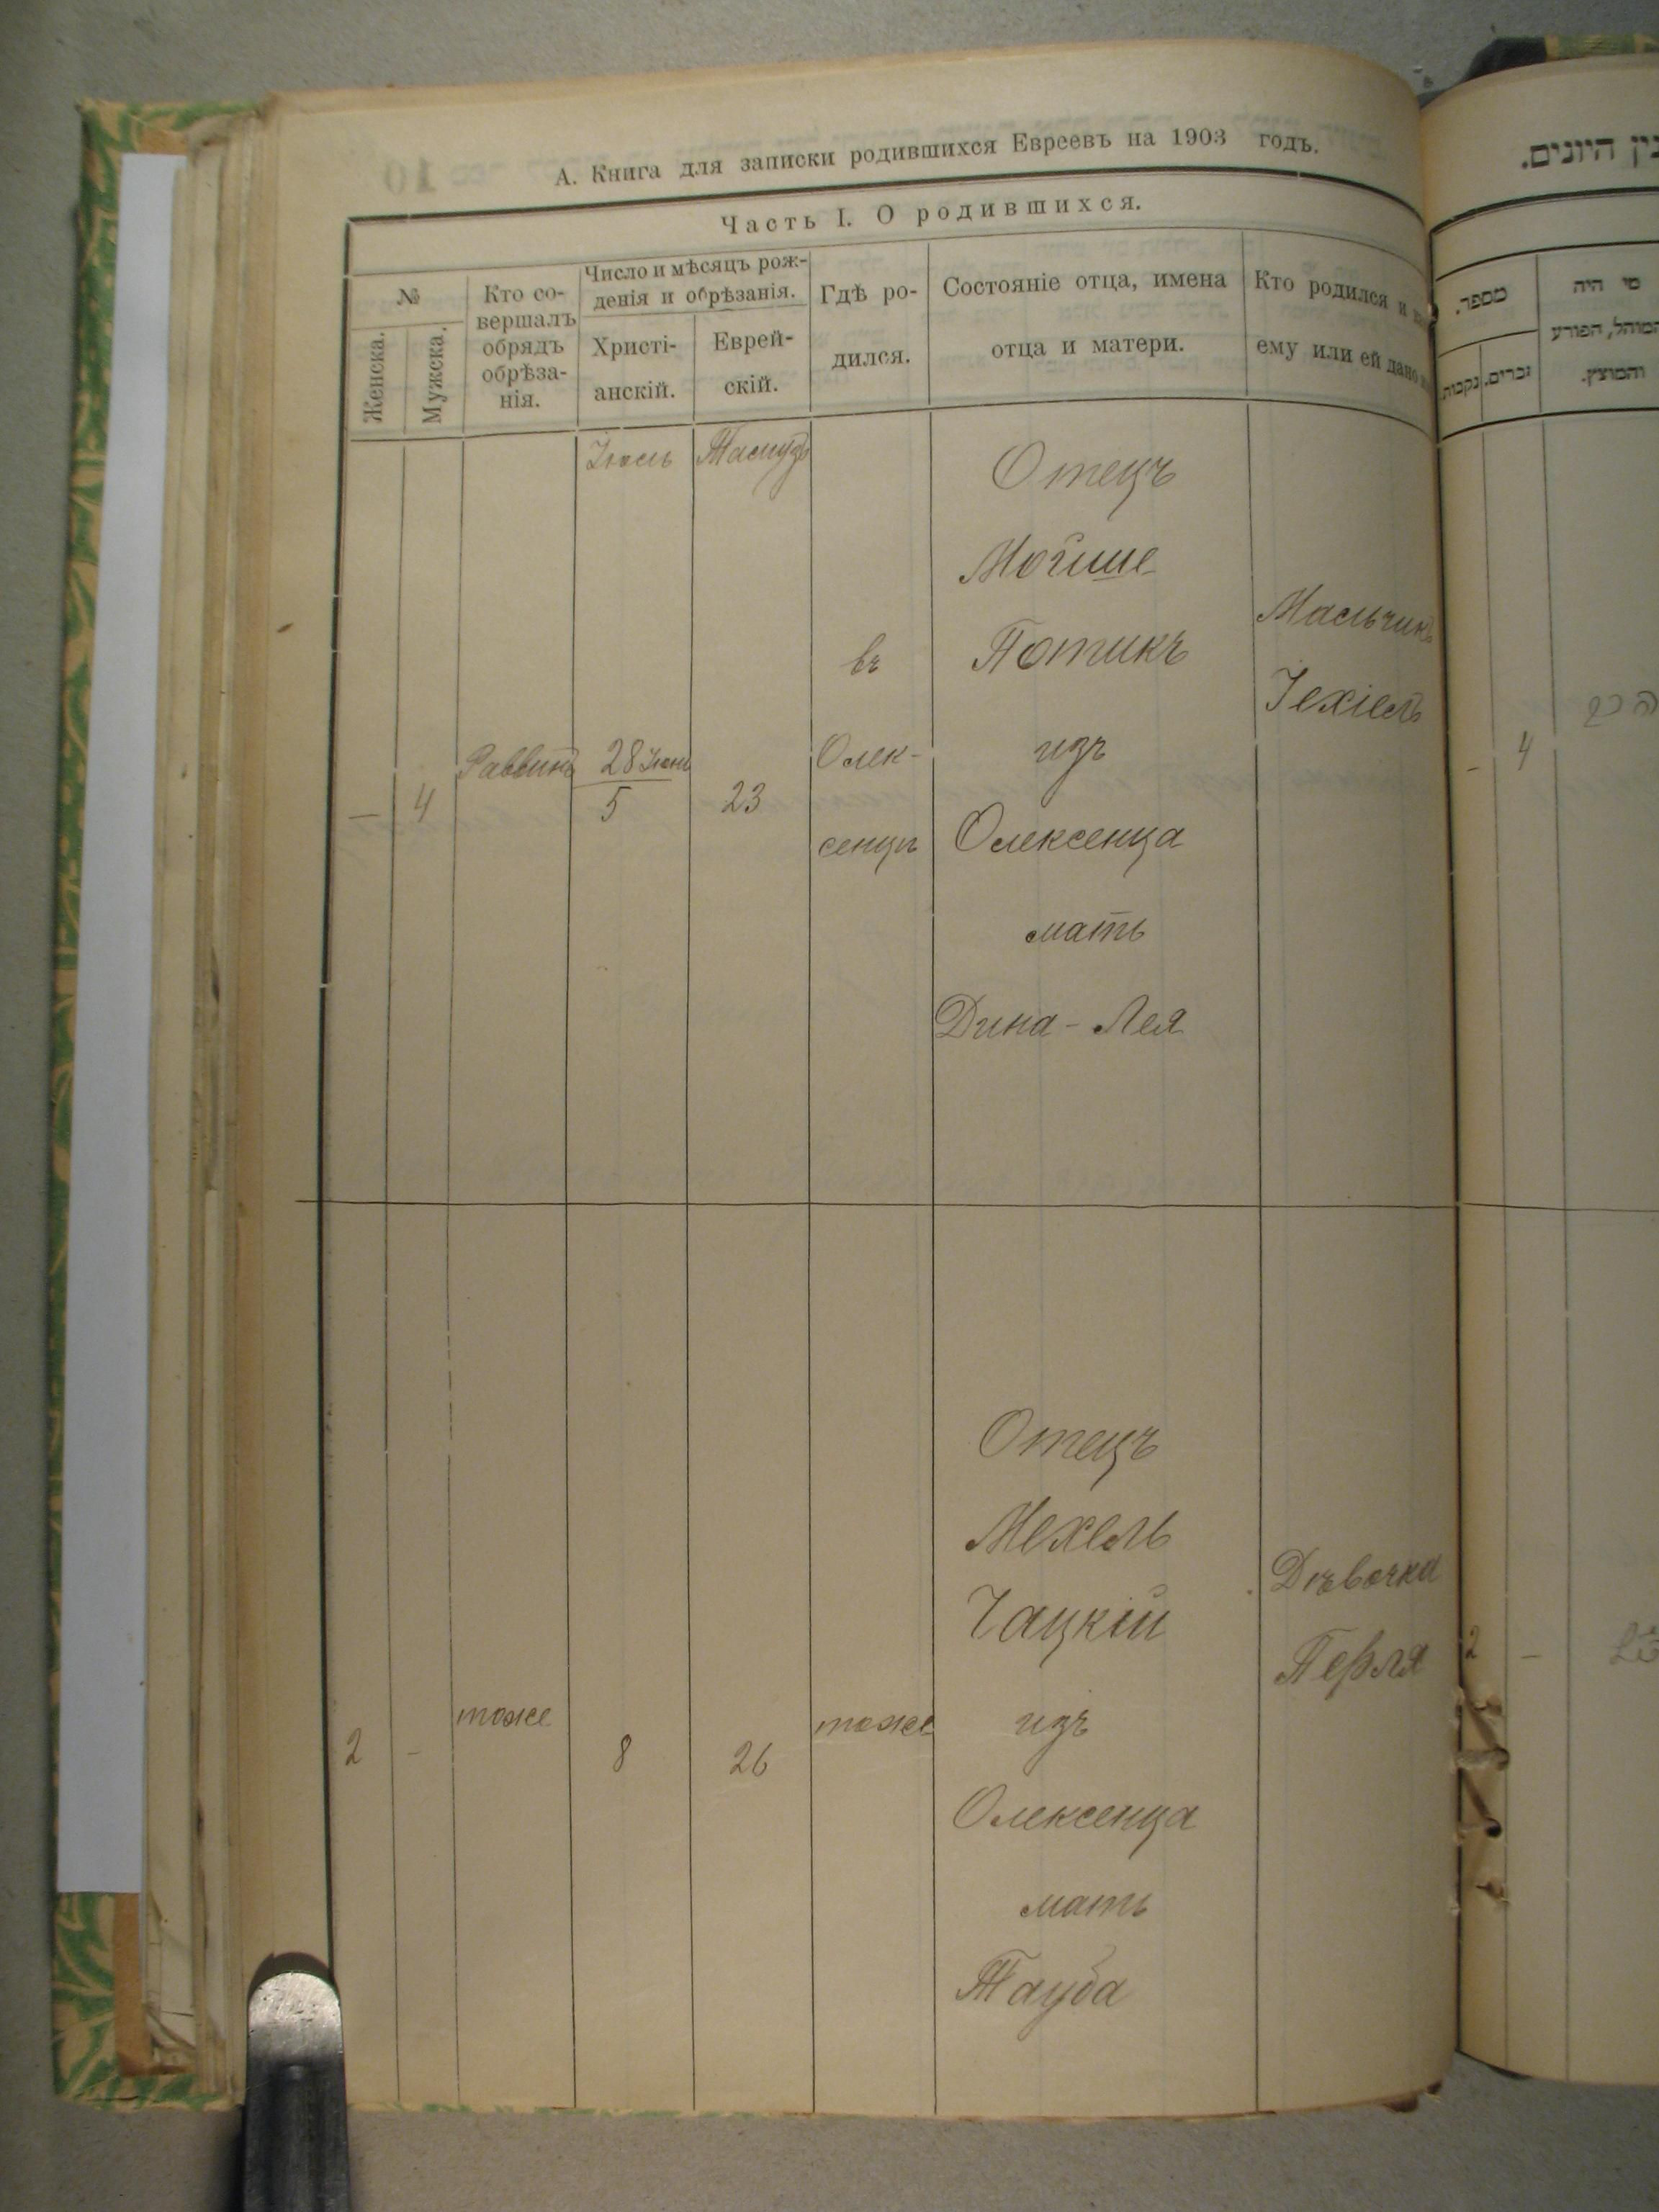 А. Книга для записки родившихся Евреевъ на 1903 годъ.
Часть I. О родившихся.
№
Женска.
Мужска.
Кто со-
вершалъ
обрядъ
обрѣза-
нія.
Число и мѣсяцъ рож-
денія и обрѣзанія.
Христі-
анскій.
Еврей-
скій.
Гдѣ ро-
дился.
Состояніе отца, имена
отца и матери.
Кто родился и
ему или ей дано
Іюль
Тамузъ
—
4
Раввинъ
28 Іюня
5
23
въ
Олек-
сенцѣ
Отецъ
Мойше
Потикъ
изъ
Олексенца
мать
Дина - Лея
Мальчикъ
Іехіель
2
-
тоже
8
26
тоже
Отецъ
Мехель
Чацкій
изъ
Олексенца
мать
Тауба
Дѣвочка
Перля
היונים.
מספר.
נקבות.
זכרים.
מי היה
המוהל, הפורע
והמוצץ.
-
4
2
-